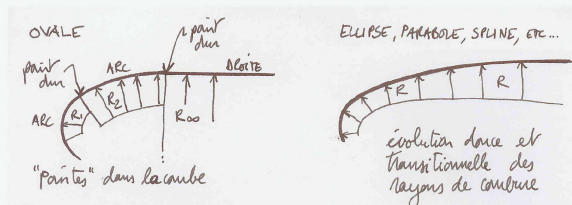 OVALE
point dur
point dur
ARC
DROITE
ARC
R1
R2
R∞
"pointes" dans la courbe
ELLIPSE, PARABOLE, SPLINE, ETC...
R
R
évolution douce et
transitionnelle des
rayons de courbure